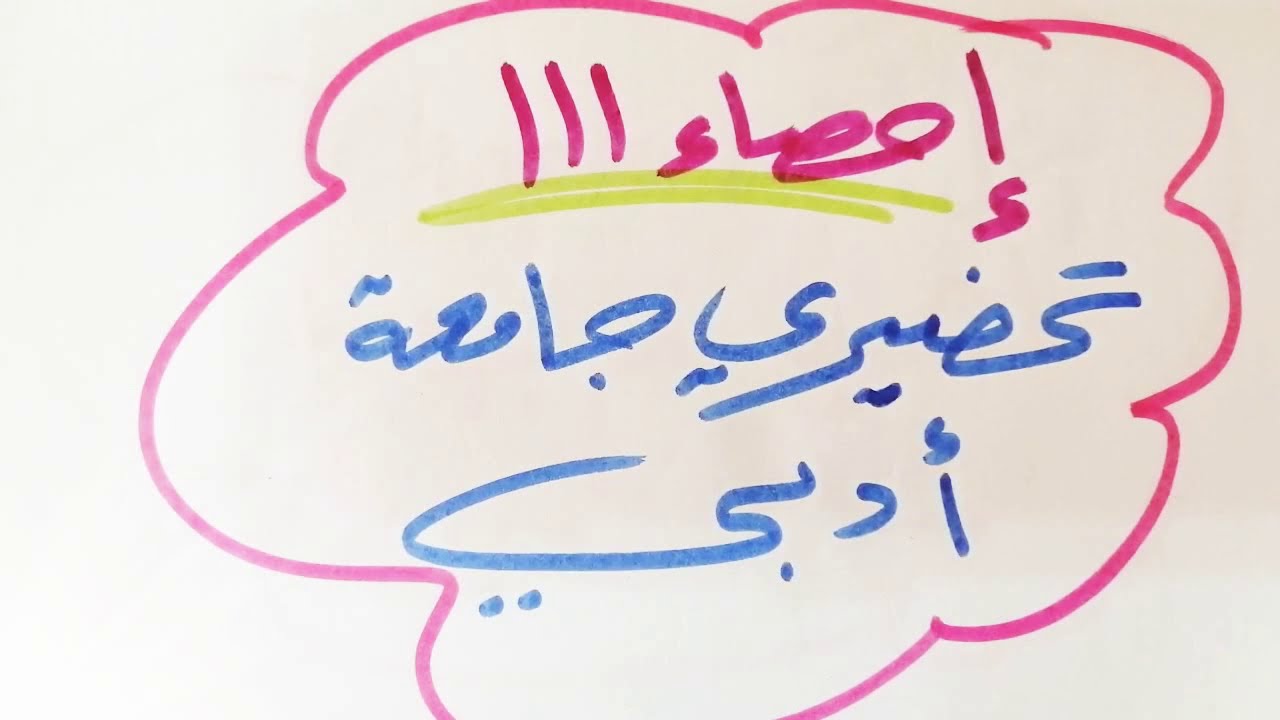 إحصاء ١١١
تحضيري جامعة
أدبي